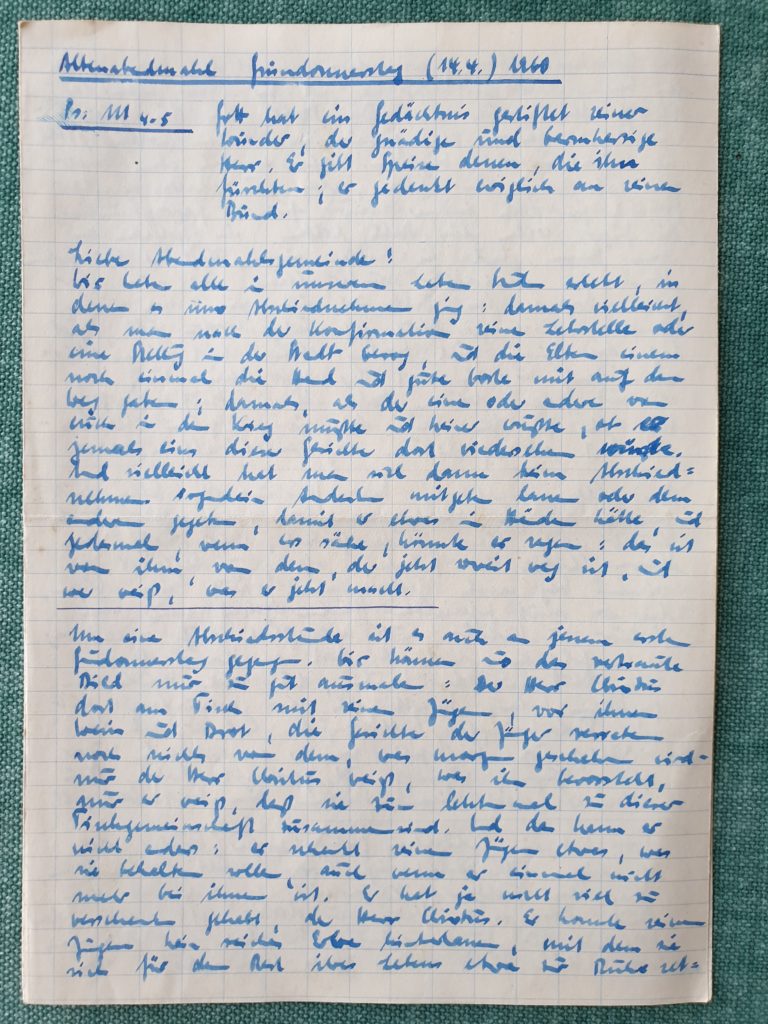 Altenabendmahl Gründonnerstag (14.4.) 1960
Ps. 111 4-5 Gott hat ein Gedächtnis gestiftet seiner
Wunder, der gnädige und barmherzige
Herr. Er gibt Speise denen, die ihn
fürchten; er gedenkt ewiglich an seinen
Bund.
Liebe Abendmahlsgemeinde!
Wir haben alle in unserem Leben erlebt, in
denen es ums Abschiednehmen ging: damals vielleicht,
als man nach der Konfirmation seine Lehrstelle oder
eine Stellg in der Stadt bezog, und die Eltern einem
noch einmal die Hand und gute Worte mit auf den
Weg gaben; damals, als der eine oder andere von
euch in den Krieg mußte und keiner wußte, ob er
jemals eins dieser Gesichter dort wiedersehen würde.
Und vielleicht hat man sich dann beim Abschied=
nehmen irgendein Andenken mitgeben lassen oder dem
anderen gegeben, damit er etwas in Händen hätte, und
jedesmal, wenn ers sähe, könnte er sagen: das ist
von ihm, von dem, der jetzt soweit weg ist, und
wer weiß, was er jetzt macht.
Um eine Abschiedsstunde ist es auch an jenem ersten
Gründonnerstag gegangen. Wir können uns das vertraute
Bild nur zu gut ausmalen: Der Herr Christus
dort am Tisch mit seinen Jügern, vor ihnen
Wein und Brot, die Gesichter der Jünger verraten
noch nichts von dem, was morgen geschehen wird-
nur der Herr Christus weiß, was ihm bevorsteht,
nur er weiß, daß sie zum letztenmal zu dieser
Tischgemeinschaft zusammensind. Und da kann er
nicht anders: er schenkt seinen Jügern etwas, was
sie behalten sollen, auch wenn er einmal nicht
mehr bei ihnen ist. Er hat ja nicht viel zu
verschenken gehabt, der Herr Christus. Er konnte seinen
Jügern kein reiches Erbe hinterlassen, mit dem sie
sich für den Rest ihres Lebens etwa zur Ruhe set=